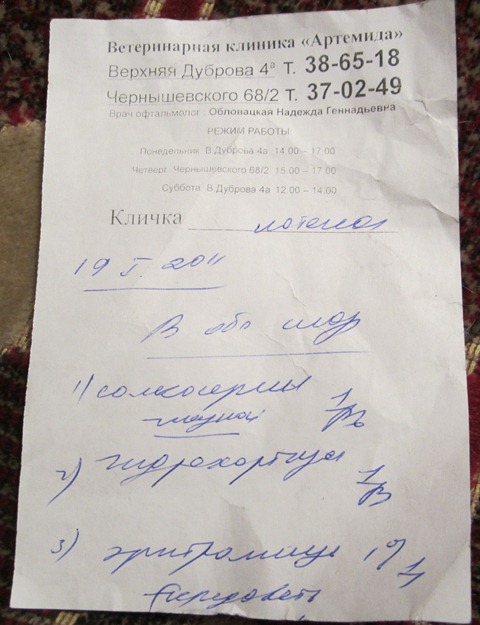 Ветеринарная клиника «Артемида»
Верхняя Дуброва 4а т. 38-65-18
Чернышевского 68/2 т. 37-02-49
Врач офтальмолог: Обловацкая Надежда Геннадьевна
РЕЖИМ РАБОТЫ:
Понедельник В.Дуброва 4а 14.00 – 17.00
Четверг Чернышевского 68/2 15.00 – 17.00
Суббота В.Дуброва 4а 12.00 – 14.00
Кличка котенок
19 I. 2011
В оба
1) солкосерил
глазной
2) гидрокортизон
3) эритромицин
чередовать